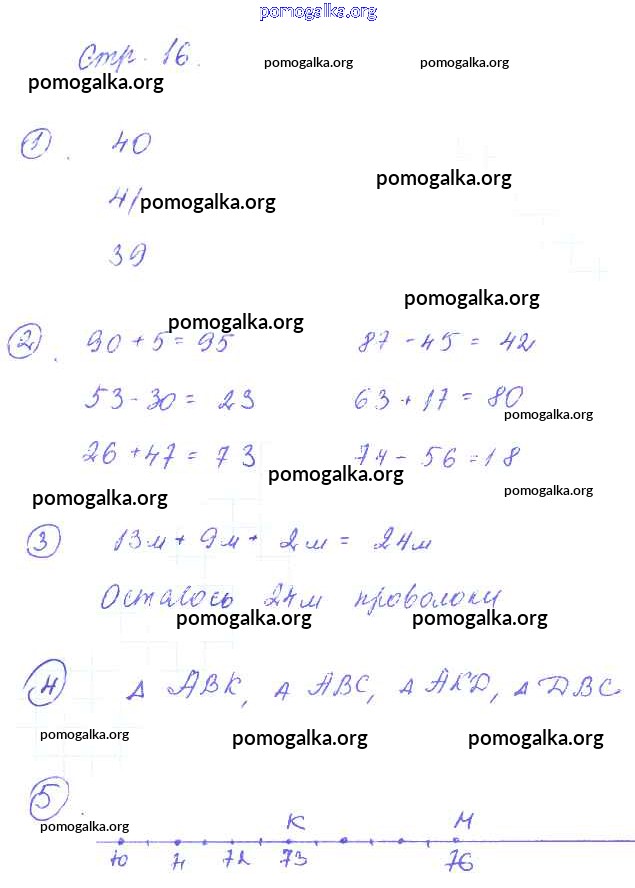 pomogalka.org
Стр. 16.
pomogalka.org pomogalka.org
pomogalka.org
1. 40
pomogalka.org
41
pomogalka.org
39
pomogalka.org
pomogalka.org
2. 90 + 5 = 95 87 - 45 = 42
53 - 30 = 23 63 + 17 = 80
pomogalka.org
26 + 47 = 73 74 - 56 = 18
pomogalka.org
pomogalka.org
pomogalka.org
3 13м + 9м + 2м = 24м
Осталось 24м проволоки
pomogalka.org pomogalka.org
4 Δ АВК, Δ АВС, Δ АКD, Δ DВС
pomogalka.org pomogalka.org pomogalka.org
5.
К М
pomogalka.org
70 71 72 73 76